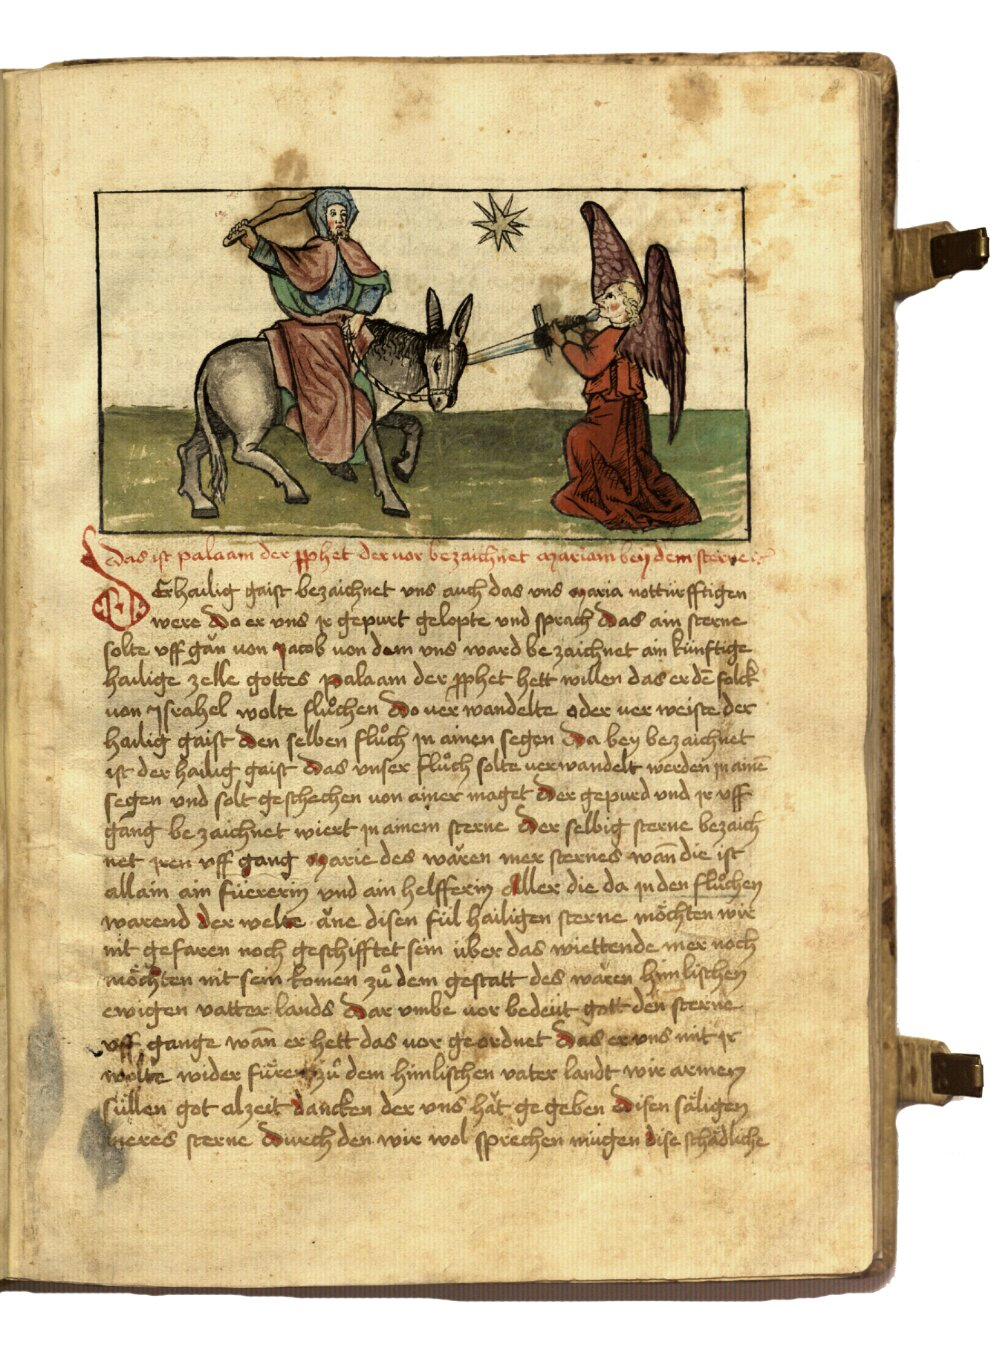 das ist palaam der pphet der vor bezaichnet mariam bey dem sterne
DEr hailig gaist bezaichnet vns auch das vns maria nottürfftigen
were Do er vns jr gepurt gelopte vnd sprach Das ain sterne
solte vff gān von jacob von dem vns ward bezaichnet ain künftige
hailige zelle gottes palaam der pphet hett willen das er dē folck
von Jsrahel wolte flůchen Do ver wandelte oder ver weiste der
hailig gaist Den selben flůch jn ainen segen Da bey bezaichnet
ist der hailig gaist Das vnser flůch solte verwandelt werden jn ainē
segen vnd solt geschechen von ainer maget Der gepurd vnd jr vff
gang bezaichnet wiert jn ainem sterne Der selbig sterne bezaich
net jren vff gang Marie des wāren mer sternes wān die ist
allain ain füererin vnd ain helfferin Aller die da jn den flůchen
warend der welte āne disen fül hailigen sterne möchten wir
nit gefaren noch geschifftet sein über das wiettende mer noch
möchten nit sein komen zů dem gestatt des wāren himlischen
ewigen vatter lands Dar vmbe vor bedeüt gott den sterne
vff gange wān er hett das vor geordnet Das er vns mit jr
wolte wider füren zů dem himlischen vater landt wir armen
süllen got alzeit dancken der vns hāt gegeben Disen säligen
meres sterne Durch den wir wol sprechen mügen dise schädliche